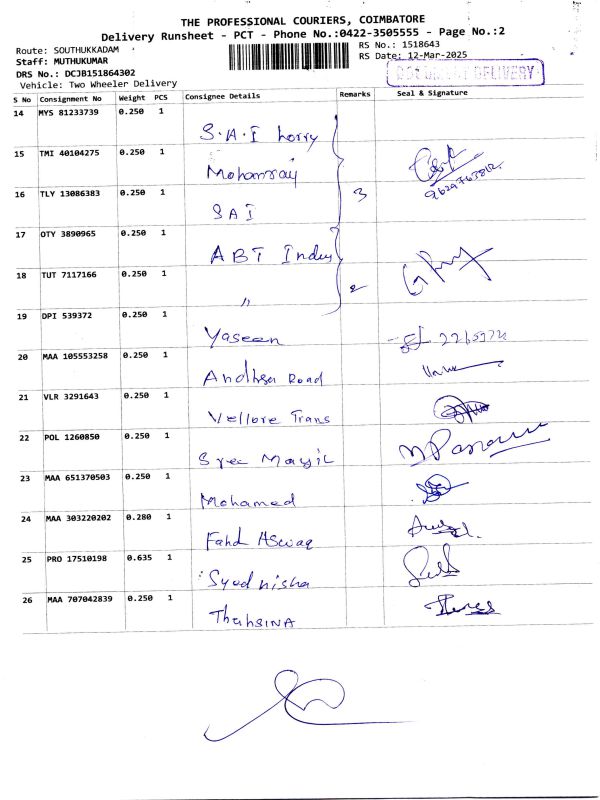 THE PROFESSIONAL COURIERS, COIMBATORE
Delivery Runsheet - PCT - Phone No.:0422-3505555 - Page No.:2
Route: SOUTHUKKADAM
RS No.: 1518643
Staff: MUTHUKUMAR
RS Date: 12-Mar-2025
DRS No.: DCJB151864302
DELIVERY
Vehicle: Two Wheeler Delivery
S No Consignment No Weight PCS Consignee Details Remarks Seal & Signature
14 MYS 81233739 0.250 1
S.A.I Lorry
15 TMI 40104275 0.250 1
Mohanraj
16 TLY 13086383 0.250 1 3
SAI
17 OTY 3890965 0.250 1
ABT Indus
18 TUT 7117166 0.250 1 2
〃
19 DPI 539372 0.250 1
Yaseen
20 MAA 105553258 0.250 1
Andhra Road
21 VLR 3291643 0.250 1
Vellore Trans
22 POL 1260850 0.250 1
Sree Mayil
23 MAA 651370503 0.250 1
Mohamed
24 MAA 303220202 0.280 1
Fahd Aswaq
25 PRO 17510198 0.635 1
Syed nisha
26 MAA 707042839 0.250 1
ThahSINA